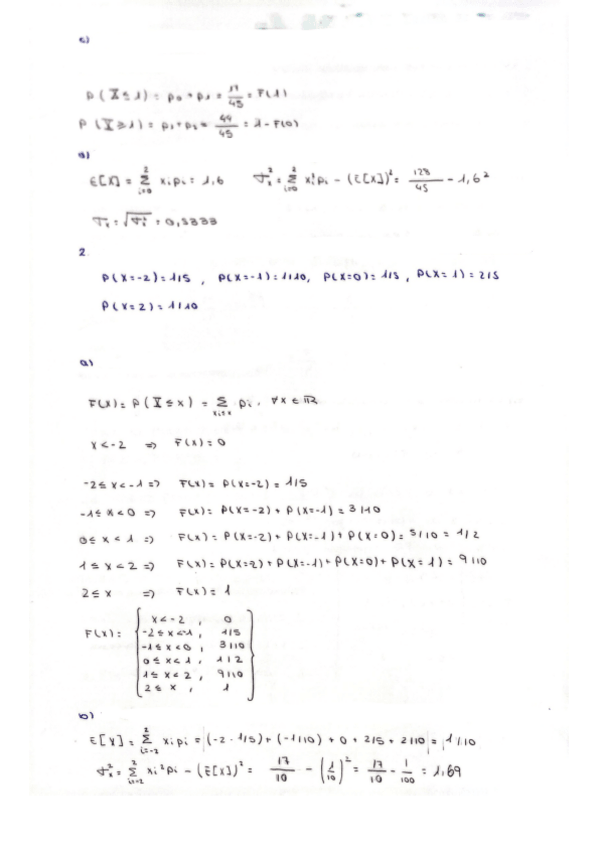 c)
P(X≤1) = p₀ + p₁ = 17/45 = F(1)
P(X≥1) = p₁+p₂ = 44/45 = 1 - F(0)
d)
E[X] = Σ_{i=0}^{2} xᵢpᵢ = 1,6 σₓ² = Σ_{i=0}^{2} xᵢ²pᵢ - (E[X])² = 128/45 - 1,6²
σₓ = √σₓ² = 0,5333
2.
P(X=-2)=1/5 , P(X=-1)=1/10, P(X=0)=1/5, P(X=1)=2/5
P(X=2)=1/10
a)
F(x) = P(X≤x) = Σ_{xᵢ≤x} pᵢ, ∀x∈ℝ
x<-2 => F(x)=0
-2≤x<-1 => F(x)= P(X=-2) = 1/5
-1≤x<0 => F(x)= P(X=-2) + P(X=-1) = 3/10
0≤x<1 => F(x)= P(X=-2) + P(X=-1) + P(X=0) = 5/10 = 1/2
1≤x<2 => F(x)= P(X=2) + P(X=-1) + P(X=0) + P(X=1) = 9/10
2≤x => F(x)= 1
F(x):
x<-2 , 0
-2≤x<1 , 1/5
-1≤x<0 , 3/10
0≤x<1 , 1/2
1≤x<2 , 9/10
2≤x , 1
b)
E[X] = Σ_{i=-2}^{2} xᵢpᵢ = (-2 · 1/5) + (-1/10) + 0 + 2/5 + 2/10 = 1/10
σₓ² = Σ_{i=-2}^{2} xᵢ²pᵢ - (E[X])² = 17/10 - (1/10)² = 17/10 - 1/100 = 1,69